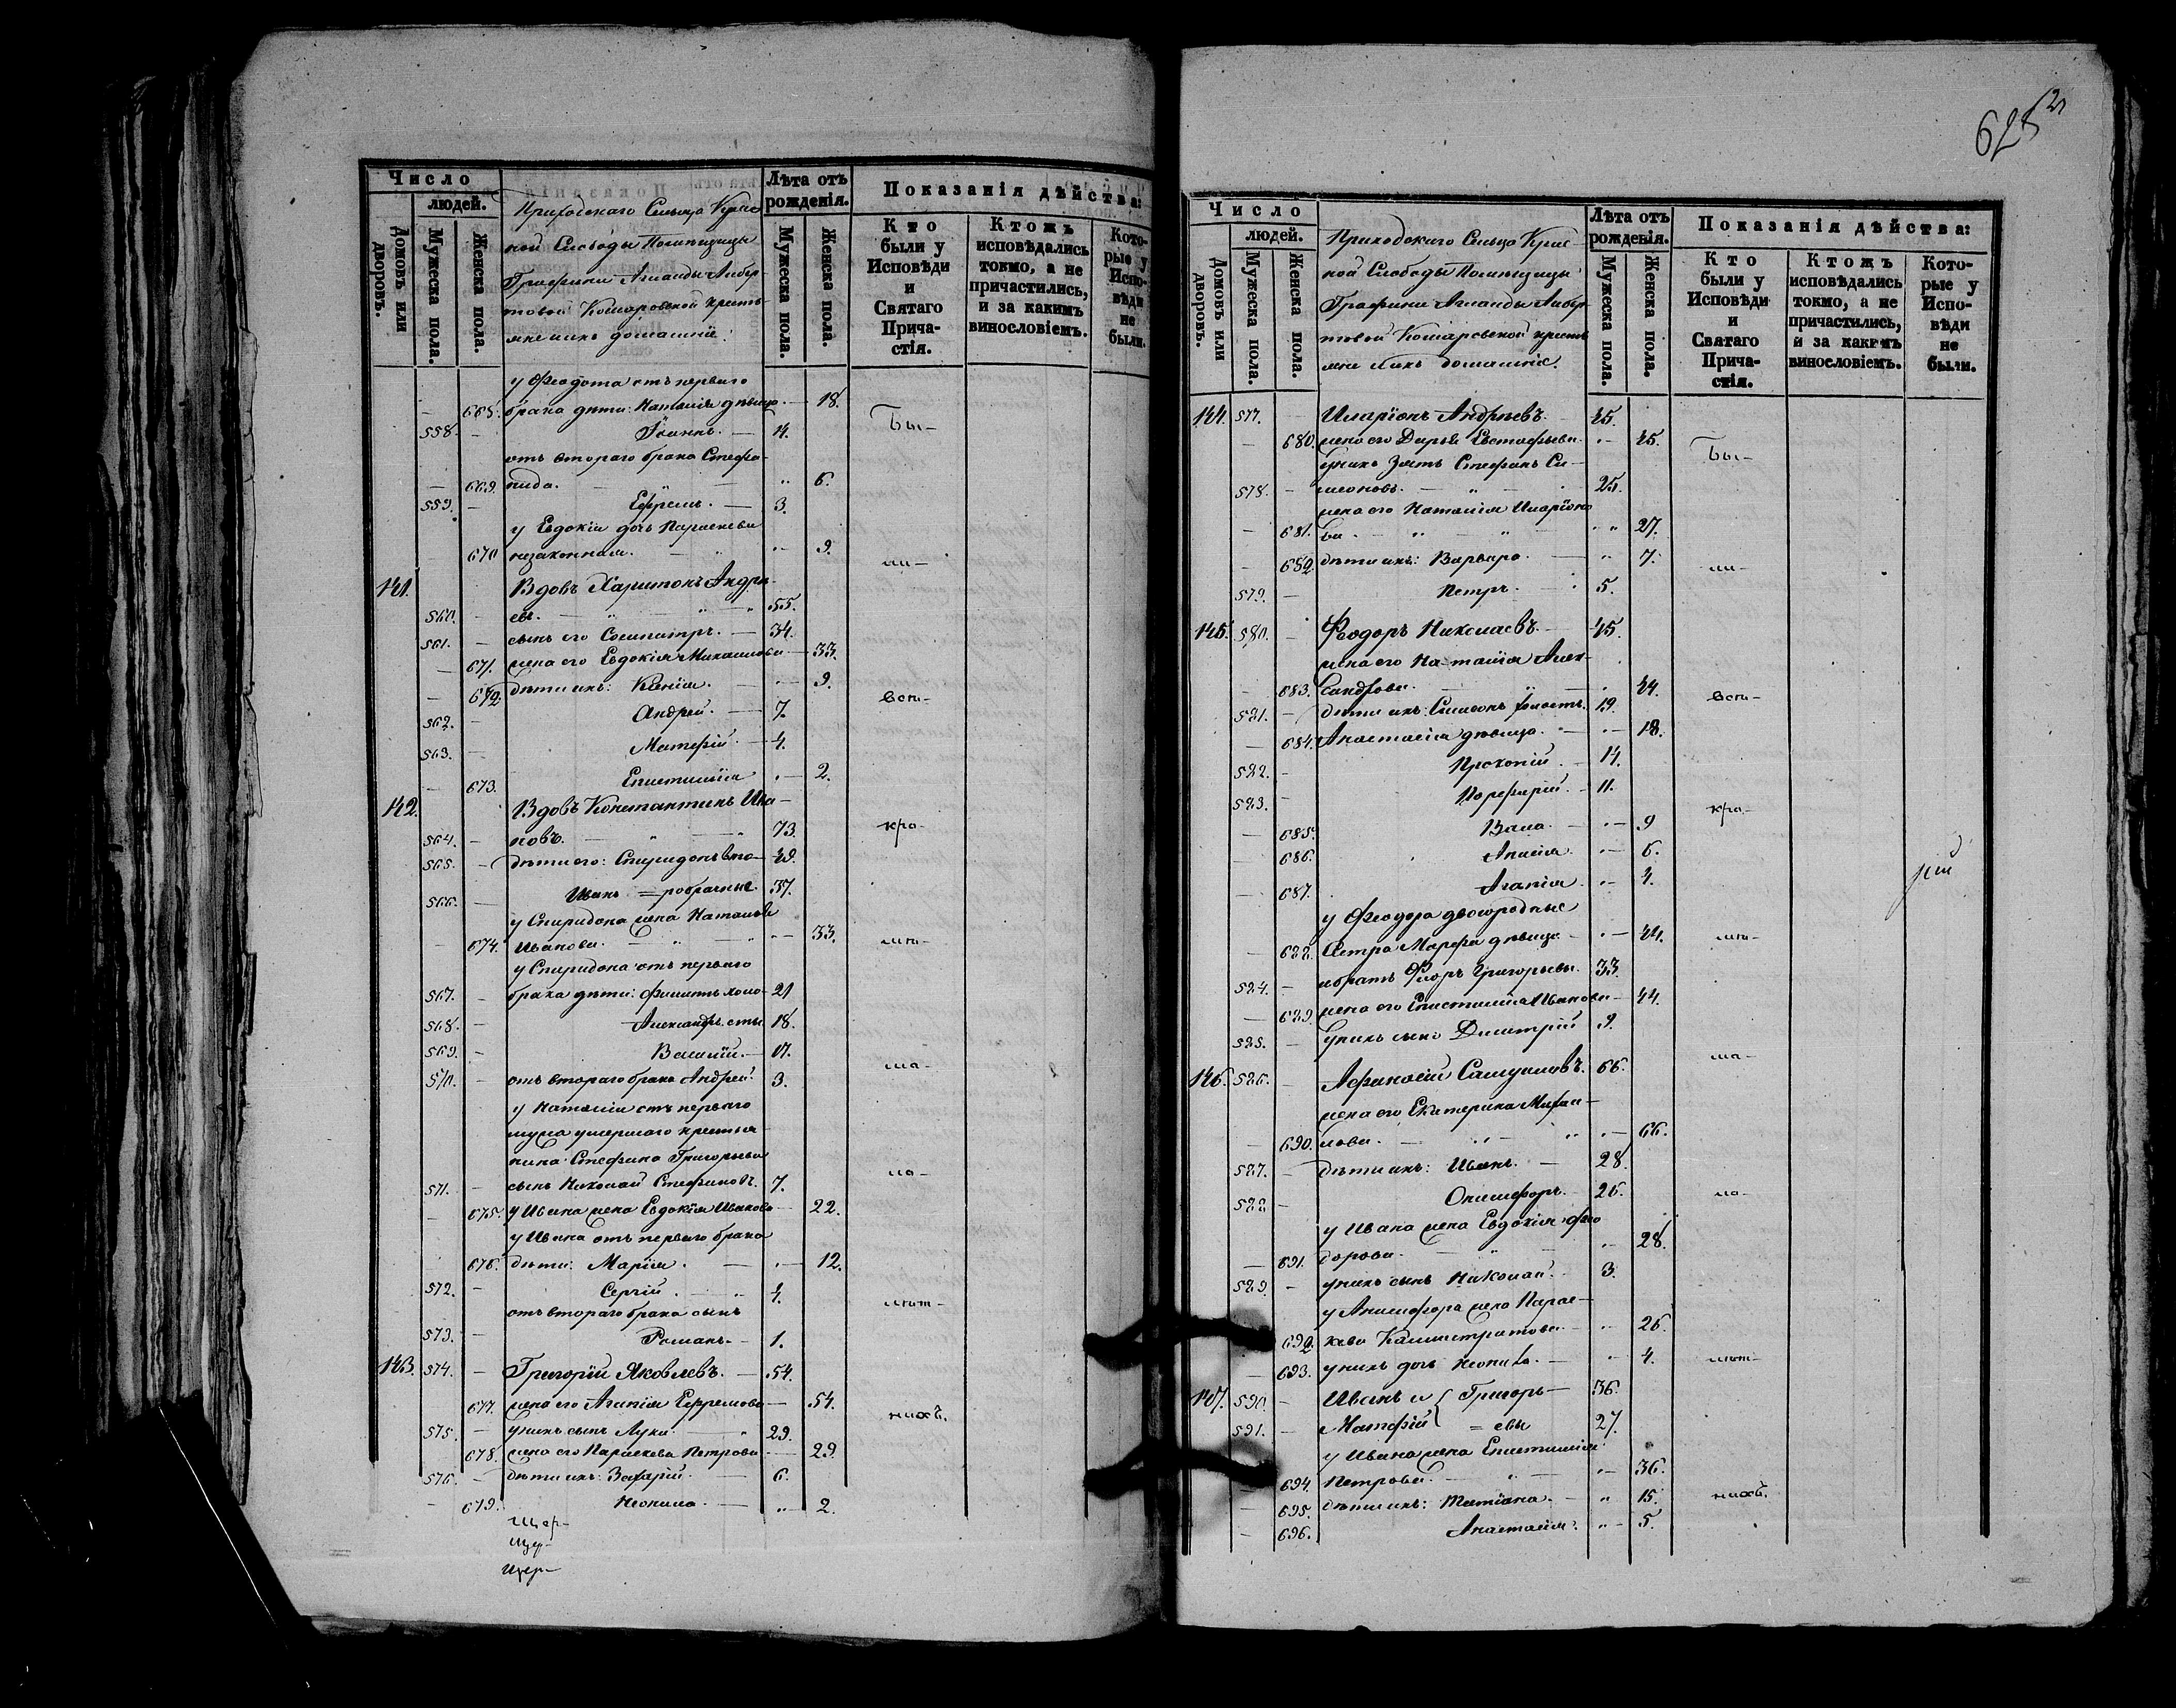 Число
людей.
Домовъ или дворовъ.
Мужеска пола.
Женска пола.
Приходскаго Сельца Крас-
ной Слободы Помѣщицы
Графини
Комаровской кресть-
домашніе.
Лѣта отъ рожденія.
Мужеска пола.
Женска пола.
Показанія дѣйства:
Кто были у Исповѣди и Святаго Прича-стія.
Ктожъ исповѣдались токмо, а не причастились, и за какимъ винословіемъ.
Кото-рые у Испо-вѣди не были.
у Феодота отъ перваго
668. брака дѣти: Наталія дѣвица 18.
558. Іоаннъ. 14.
Бы-
отъ втораго брака Стефа-
669. нида. 6.
559. Ефремъ. 3.
у Евдокіи дочь Параскева
670 незаконная. 9.
ли-
141. Вдовъ Харитонъ Андре-
560. евъ. 55.
561. сынъ его Сосипатръ. 34.
671. жена его Евдокія Михаилова 33.
672 дѣти ихъ: Ксенія. 9.
вси-
562. Андрей. 7.
563. Матфій. 4.
673. Епистимія 2.
142. Вдовъ Константинъ Ива-
564. новъ. 73.
кра-
565. дѣти его: Спиридонъ вто- 49.
566. Иванъ =робрачные 37.
у Спиридона жена Наталья
674. Иванова. 33.
у Спиридона отъ перваго
567. брака дѣти: Филиппъ холо- 21
568. Александръ 18.
569. Василій. 17.
570. отъ втораго брака Андрей. 3.
ма-
у Наталіи отъ перваго
мужа умершаго крестья-
нина Стефана Григорьева
571. сынъ Николай Стефановъ. 7.
ла-
675. у Ивана жена Евдокія Иванова 22.
у Ивана отъ перваго брака
676. дѣти: Марія. 12.
572. Сергій. 4.
отъ втораго брака сынъ
573. Романъ. 1.
143. 574. Григорій Яковлевъ. 54.
677. жена его Агапія Ефремова 54.
нихъ.
575. у нихъ сынъ Лука. 29.
678. жена его Параскева Петрова 29.
576. дѣти ихъ: Захарій. 6.
679. Неонила. 2.
Щер-
Щер-
Щер-
628
Число
людей.
Домовъ или дворовъ.
Мужеска пола.
Женска пола.
Приходскаго Сельца Крас-
ной Слободы Помѣщицы
Графини
Комаровской кресть-
домашніе.
Лѣта отъ рожденія.
Мужеска пола.
Женска пола.
Показанія дѣйства:
Кто были у Исповѣди и Святаго Прича-стія.
Ктожъ исповѣдались токмо, а не причастились, и за какимъ винословіемъ.
Кото-рые у Испо-вѣди не были.
144. 577. Иларіонъ Андреевъ 45.
680. жена его Дарья Евстафьева 45.
Бы-
у нихъ зять Стефанъ Си-
578. меоновъ. 25.
жена его Наталія Иларіоно
681. ва. 27.
682. дѣти ихъ: Варвара. 7.
ли-
579. Петръ. 5.
145. 580. Феодоръ Николаевъ. 45.
жена его Наталія Алек-
683. сандрова. 44.
вси-
581. дѣти ихъ: Симеонъ холостъ. 19.
684. Анастасія дѣвица. 18.
582. Прокопій. 14.
583. Порфирій. 11.
кра-
685. Васса. 9
686. Анисія. 6.
687. Агапія. 4.
у Феодора двоюродные
688. Сестра Марфа дѣвица 44.
584. и братъ Флоръ Григорьевы. 33.
689. жена его Епистимія Иванова 44.
585. у нихъ сынъ Димитрій 9.
ма-
146. 586. Афанасій Самуиловъ. 66.
жена его Екатерина Михаи-
690. лова. 66.
587. дѣти ихъ: Иванъ. 28.
588 Онисифоръ. 26.
ла-
у Ивана жена Евдокія Фео
691. дорова. 28.
589. у нихъ сынъ Николай. 3.
у Анисифора жена Парас-
692. кева Каллистратова 26.
693. у нихъ дочь Неонила. 4.
147. 590. Иванъ и Григорь- 36.
591. Матфій = евы 27.
у Ивана жена Епистимія
694. Петрова. 36.
695. дѣти ихъ: Татіана. 15.
нихъ.
696. Анастасія. 5.